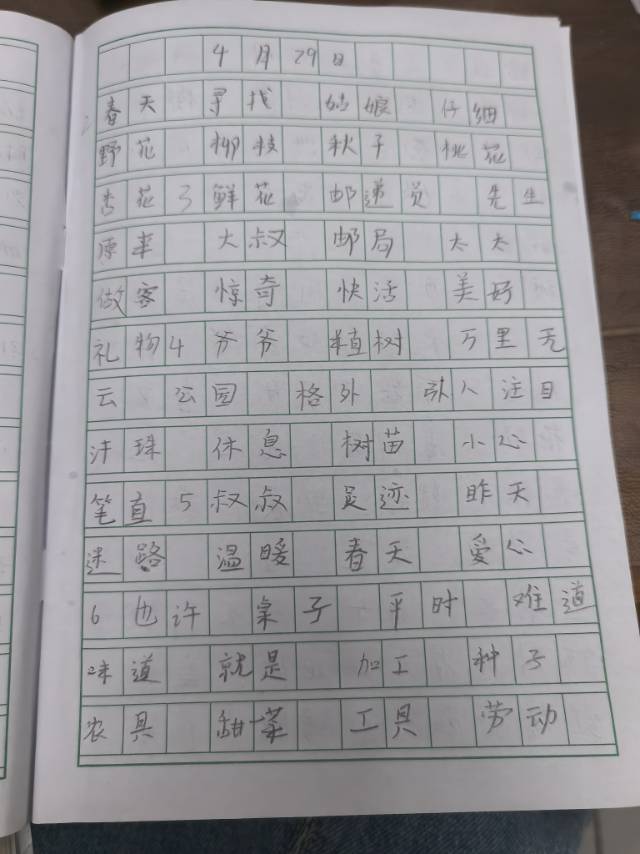 4月29日
春天 寻找 姑娘 仔细
野花 柳枝 秋千 桃花
杏花 3 鲜花 邮递员 先生
原来 大叔 邮局 太太
做客 惊奇 快活 美好
礼物 4 爷爷 植树 万里无
云 公园 格外 引人注目
汗珠 休息 树苗 小心
笔直 5 叔叔 足迹 昨天
迷路 温暖 春天 爱心
6 也许 桌子 平时 难道
味道 就是 加工 种子
农具 甜菜 工具 劳动